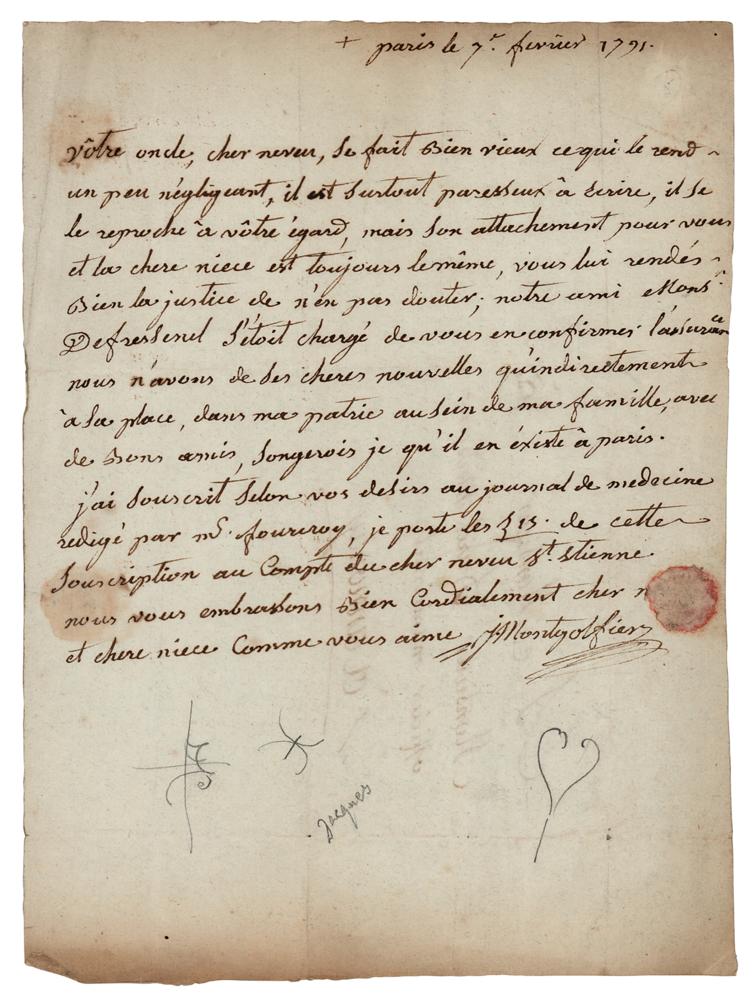 + paris le 7r. fevrier 1791.
vôtre oncle, cher neveu, se fait Bien vieux ce qui le rend
un peu négligeant, il est surtout paresseux â écrire, il se
le reproche â vôtre égard, mais son attachement pour vous
et la chere niece est toujours le même, vous lui rendés
Bien la justice de n'en pas douter; notre ami Monsr
Defressenel s'étoit chargé de vous en confirmer l'assurance
nous n'avons de ses cheres nouvelles qu'indirectement
â sa place, dans ma patrie au sein de ma famille, avec
de Bons amis, songerois je qu'il en éxiste â paris.
j'ai souscrit selon vos desirs au journal de medecine
redigé par mr. fourcroy, je porte les 15 de cette
souscription au Compte du cher neveu St. Etienne.
nous vous embrassons Bien Cordialement cher n
et chere niece Comme vous aime JMontgolfier
Jacques